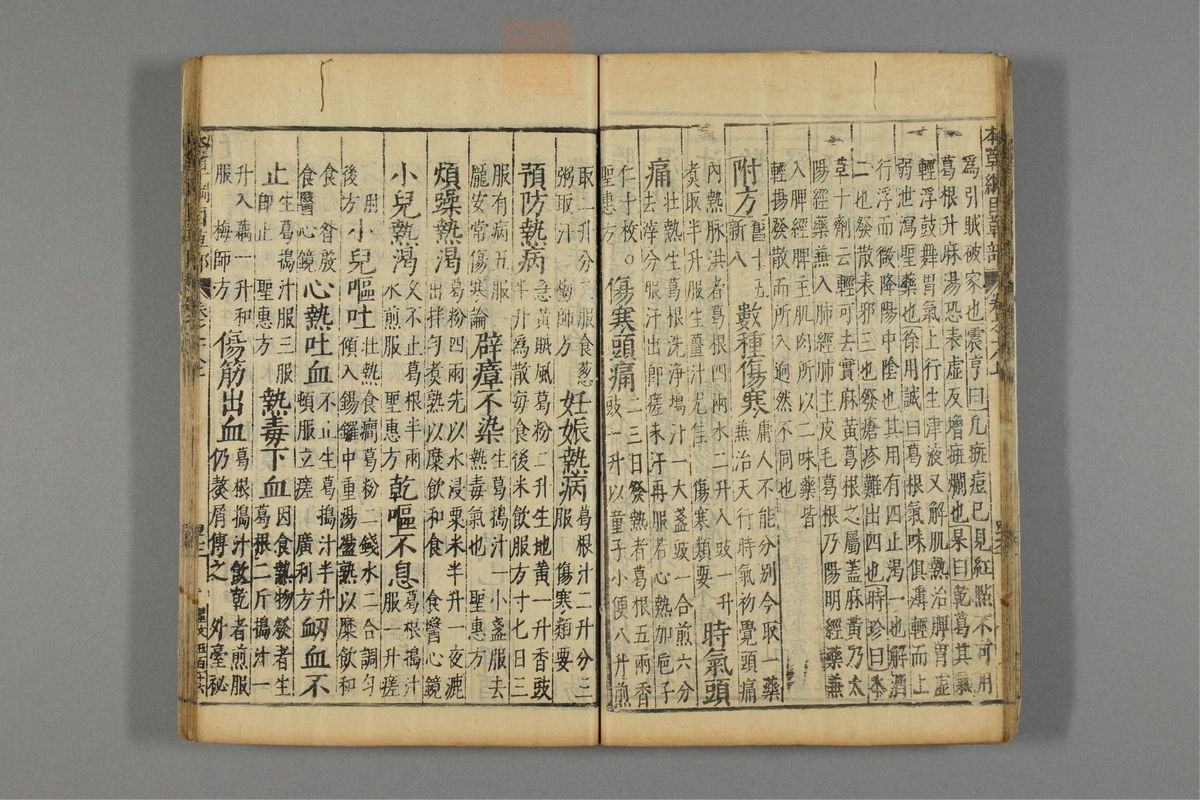 本草綱目草部 卷之十八上
為引賊破家也震亨曰凡斑痘已見紅點不可用
葛根升麻湯恐表虛反增斑爛也杲曰乾葛其氣
輕浮鼓舞胃氣上行生津液又解肌熱治脾胃虛
弱泄瀉聖藥也徐用誠曰葛根氣味俱薄輕而上
行浮而微降陽中陰也其用有四止渴一也解酒
二也發散表邪三也發瘡疹難出四也時珍曰本
草十劑云輕可去實麻黃葛根之屬蓋麻黃乃太
陽經藥兼入肺經肺主皮毛葛根乃陽明經藥兼
入脾經脾主肌肉所以二味藥皆
輕揚發散而所入迥然不同也
附方舊十五新八 數種傷寒庸人不能分別今取一藥兼治天行時氣初覺頭痛
內熱脉洪者葛根四兩水二升入豉一升煮取半升服生薑汁尤佳 傷寒類要 時氣頭
痛壯熱生葛根洗淨搗汁一大盞豉一合煎六分去滓分服汗出即瘥未汗再服若心熱加巵子
仁十枚○聖惠方 傷寒頭痛二三日發熱者葛根五兩香豉一升以童子小便八升煎
取二升分三服食葱粥取汗 梅師方 妊娠熱病葛根汁二升分三服 傷寒類要
預防熱病急黃賊風葛粉二升生地黃一升香豉半升為散每食後米飲服方寸七日三
服有病五服 龐安常傷寒論 辟瘴不染生葛搗汁一小盞服去熱毒氣也 聖惠方
煩躁熱渴葛粉四兩先以水浸粟米半升一夜漉出拌勻煮熟以糜飲和食 食醫心鏡
小兒熱渴久不止葛根半兩水煎服 聖惠方 乾嘔不息葛根搗汁服一升瘥
肘後方 小兒嘔吐壯熱食癇葛粉二錢水二合調勻傾入錫鑼中重湯盪熟以糜飲和
食 昝殷食醫心鏡 心熱吐血不止生葛搗汁半升頓服立瘥 廣利方 衂血不
止生葛搗汁服三服即止 聖惠方 熱毒下血因食熱物發者生葛根二斤搗汁一
升入藕一升和服 梅師方 傷筋出血葛根搗汁飲乾者煎服仍熬屑傅之 外臺秘